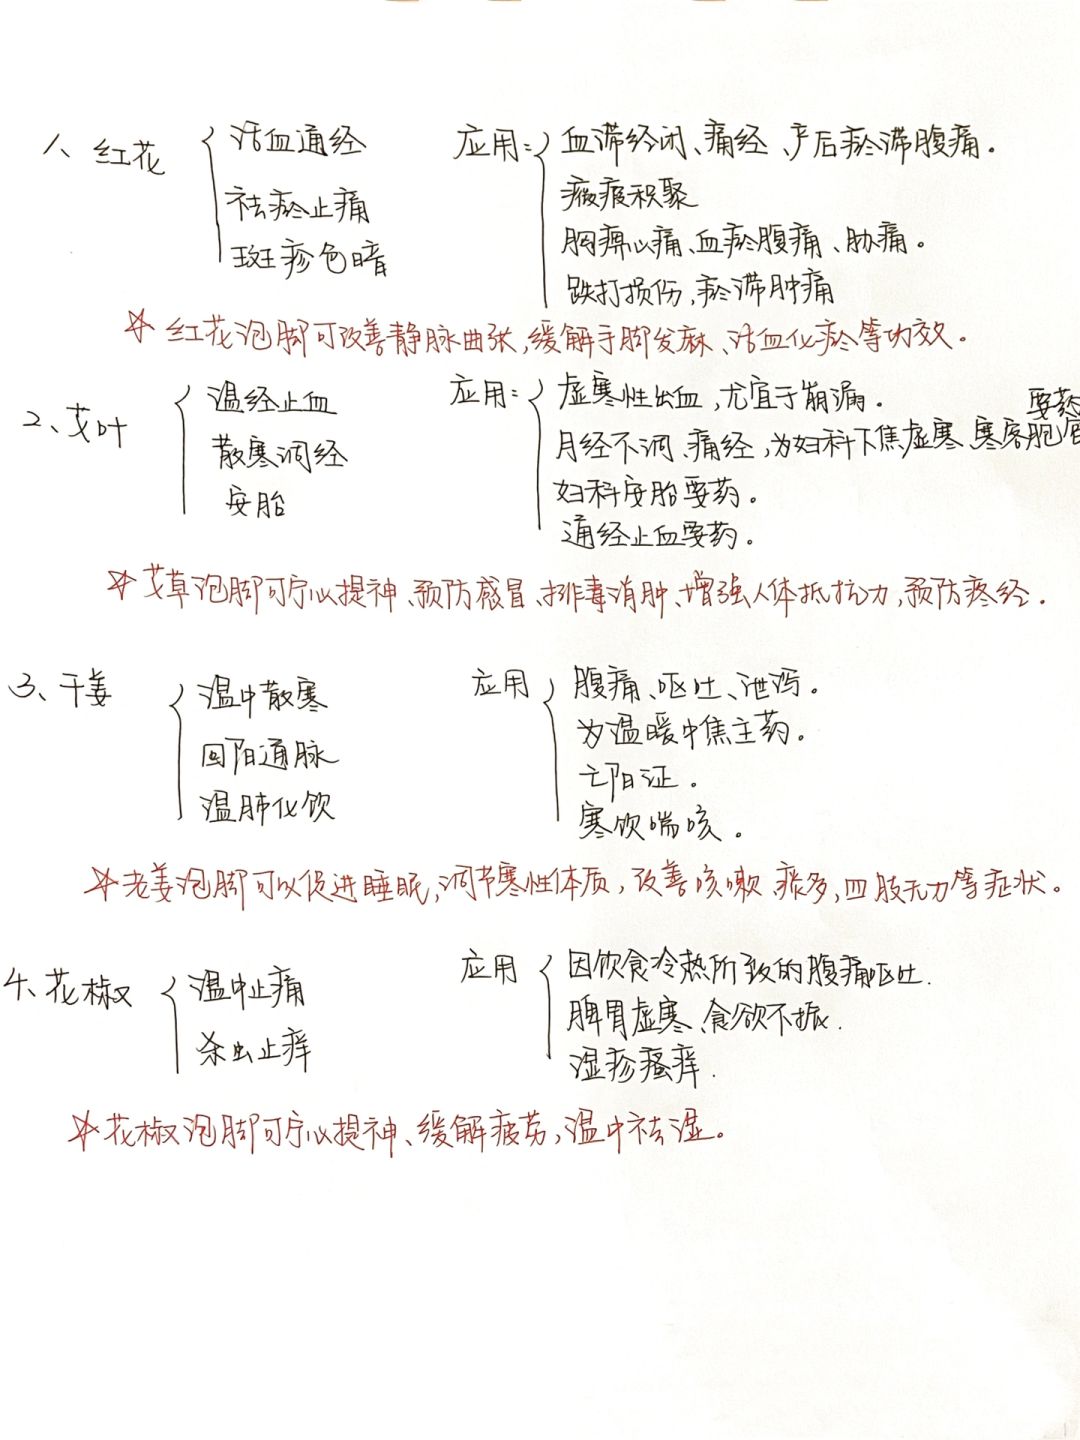 1、红花 活血通经 应用: 血滞经闭、痛经、产后瘀滞腹痛。
祛瘀止痛 癥瘕积聚
斑疹色暗 胸痹心痛、血瘀腹痛、胁痛。
跌打损伤,瘀滞肿痛
☆ 红花泡脚可改善静脉曲张,缓解手脚发麻、活血化瘀等功效。
2、艾叶 温经止血 应用: 虚寒性出血,尤宜于崩漏。
散寒调经 月经不调、痛经,为妇科下焦虚寒、寒客胞宫要药
安胎 妇科安胎要药。
通经止血要药。
☆ 艾草泡脚可宁心提神、预防感冒、排毒消肿、增强人体抵抗力,预防疼经.
3、干姜 温中散寒 应用 腹痛、呕吐、泄泻。
回阳通脉 为温暖中焦主药。
温肺化饮 亡阳证。
寒饮喘咳。
☆ 老姜泡脚可以促进睡眠,调节寒性体质,改善咳嗽、痰多,四肢无力等症状。
4、花椒 温中止痛 应用 因饮食冷热所致的腹痛呕吐.
杀虫止痒 脾胃虚寒、食欲不振.
湿疹瘙痒.
☆ 花椒泡脚可宁心提神、缓解疲劳,温中祛湿。